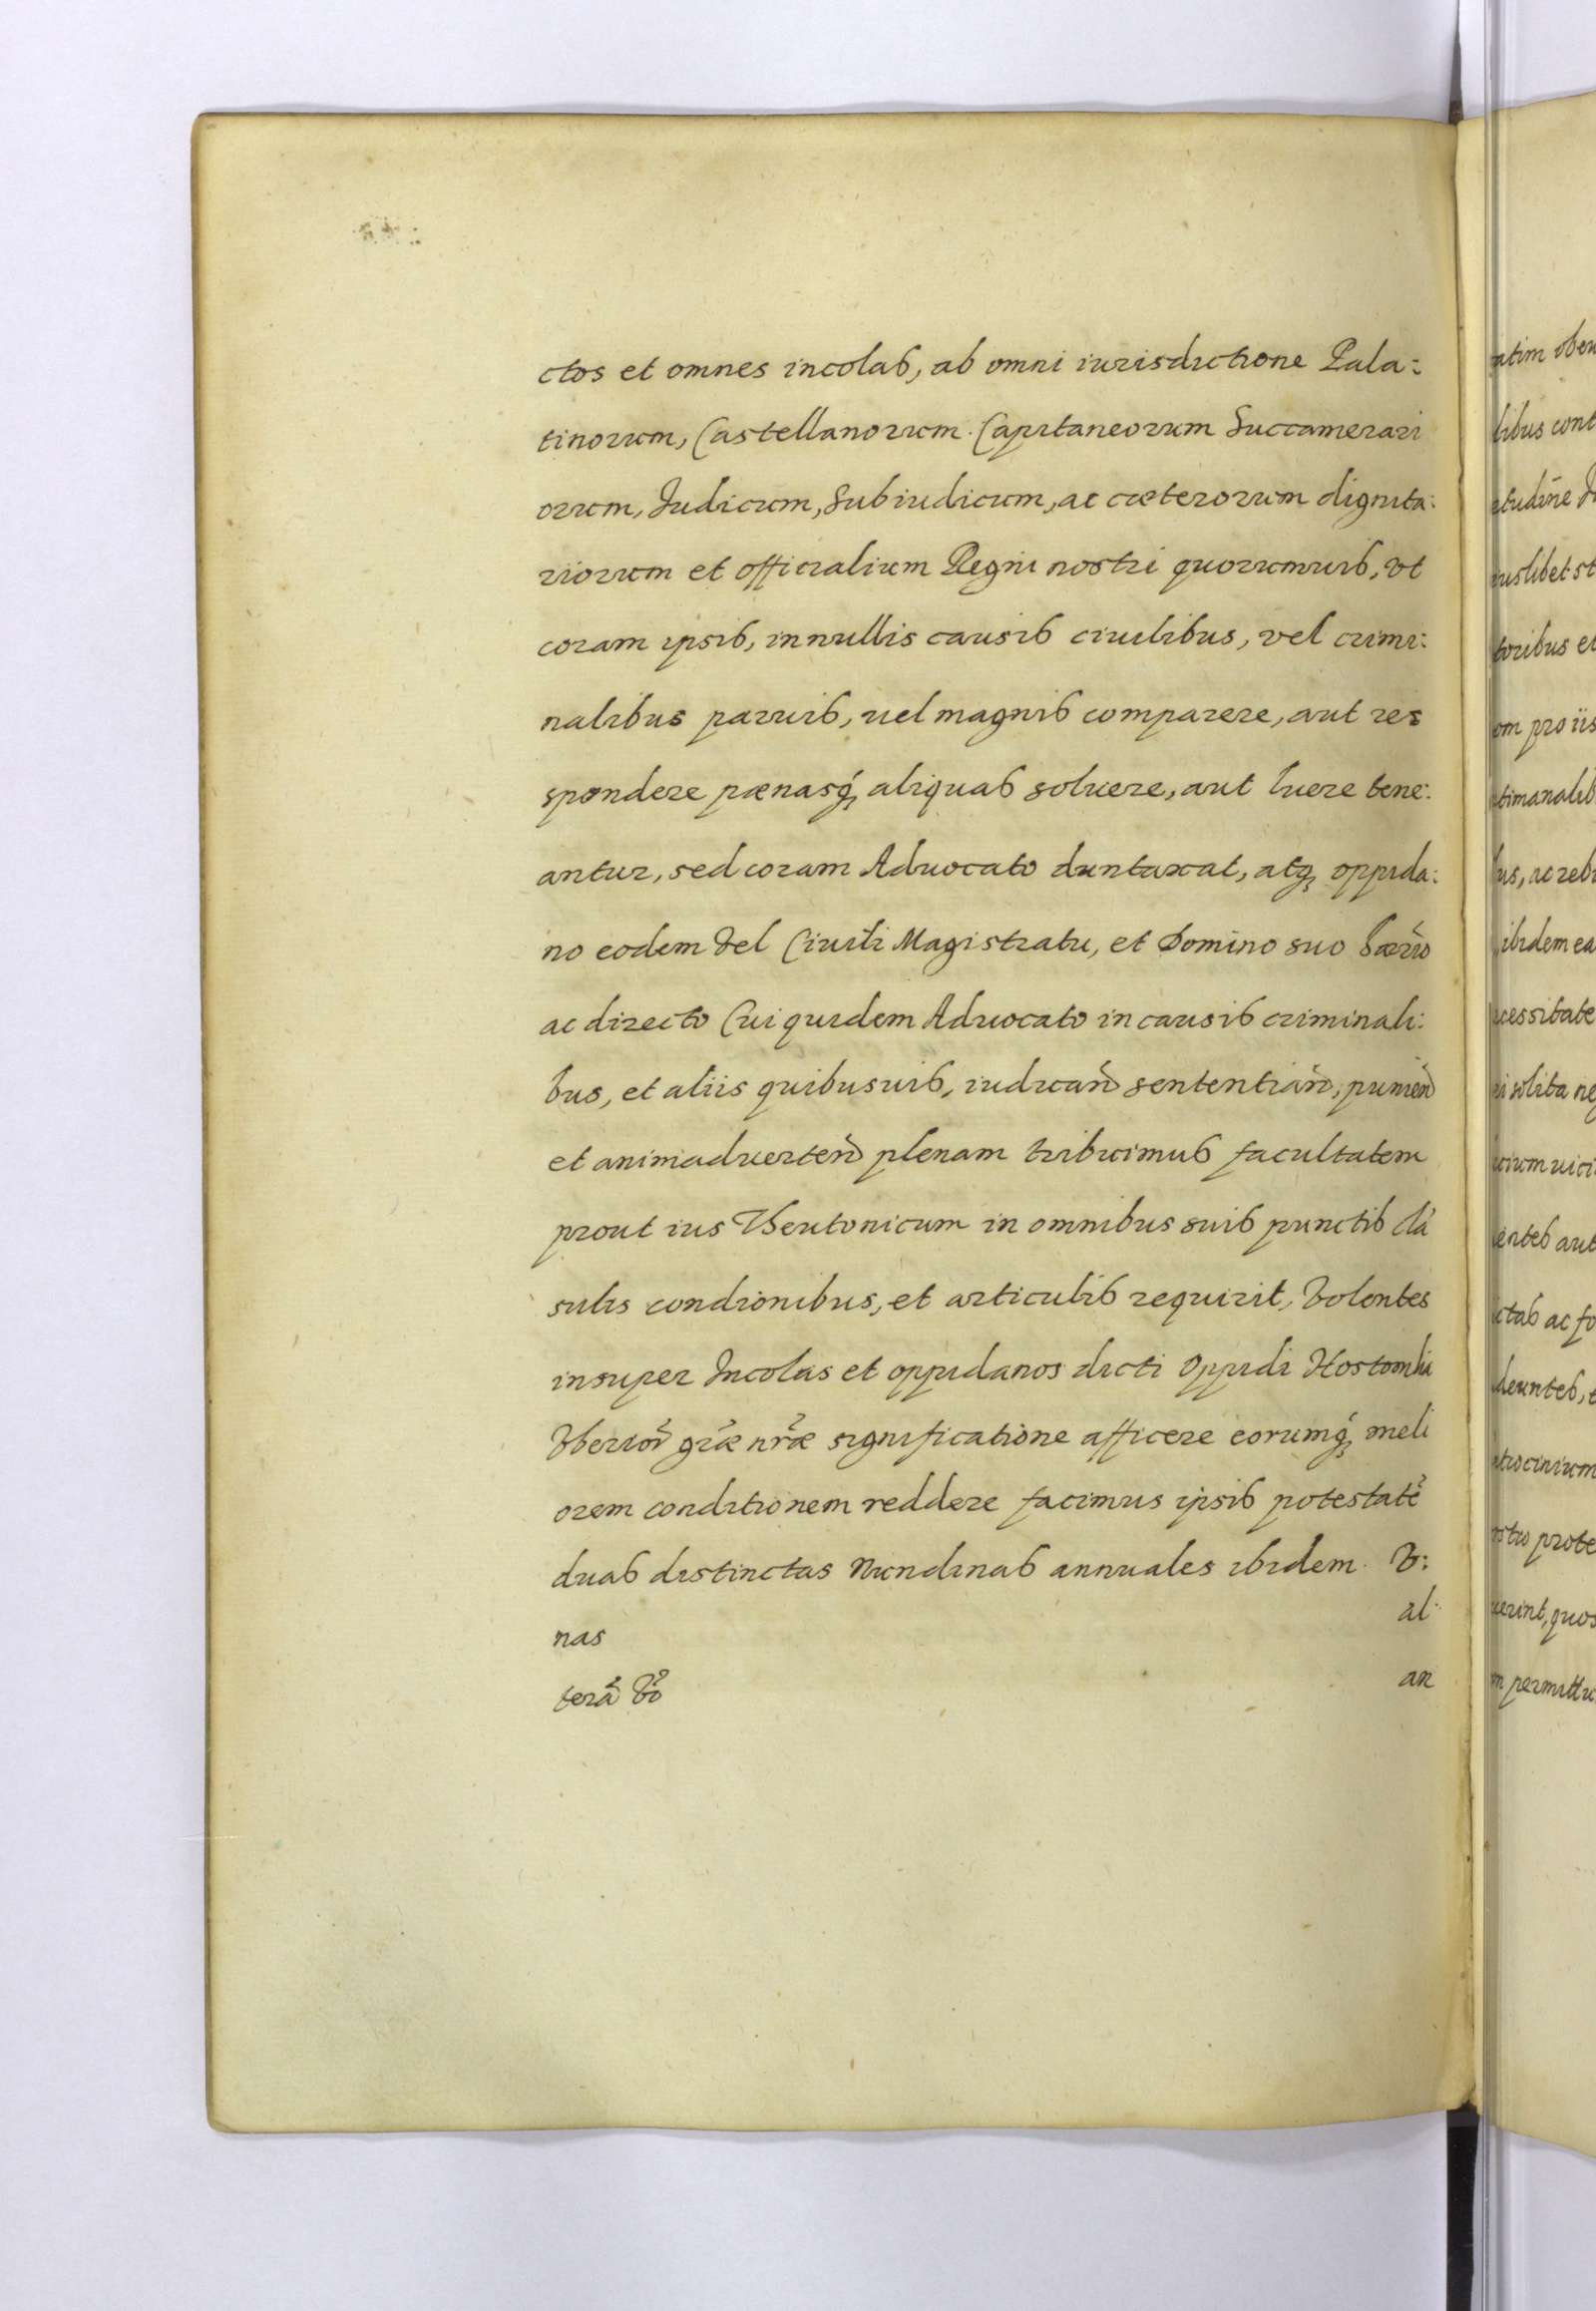 ctos et omnes incolas, ab omni iurisdictione Pala:
tinorum, Castellanorum. Capitaneorum Succamerari
orum, Iudicum, Subiudicum, ac cæterorum dignita:
riorum et officialium Regni nostri quorumuis, Vt
coram ipsis, in nullis causis ciuilibus, vel crimi:
nalibus paruis, uel magnis comparere, aut res
spondere pænasq́ꝫ aliquas soluere, aut luere tene:
antur, sed coram Aduocato duntaxat, atqꝫ oppida:
no eodem Vel Ciuili Magistratu, et Domino suo
ac directo Cui quidem Aduocato in causis criminali:
bus, et aliis quibusuis, iudican̄ sententian̄, punien̄
et animaduerten̄ plenam tribuimus facultatem
prout ius Theutonicum in omnibus suis punctis clá
sulis condionibus, et articulis requirit, Volentes
insuper Incolas et oppidanos dicti Oppidi Hostomlia
Vberior̃ gr̃æ nr̃æ significatione afficere eorumq́ꝫ meli
orem conditionem reddere facimus ipsis potestatẽ
duas distinctas Nundinas annuales ibidem. V:
nas al
terã Võ an
atim oben
libus cont
uslibet st
toribus et
om pro iis
us, ac reb
ibidem ea
cessitate
entes aut
ctas ac fo
ostro prote
uerint, quos
permittu